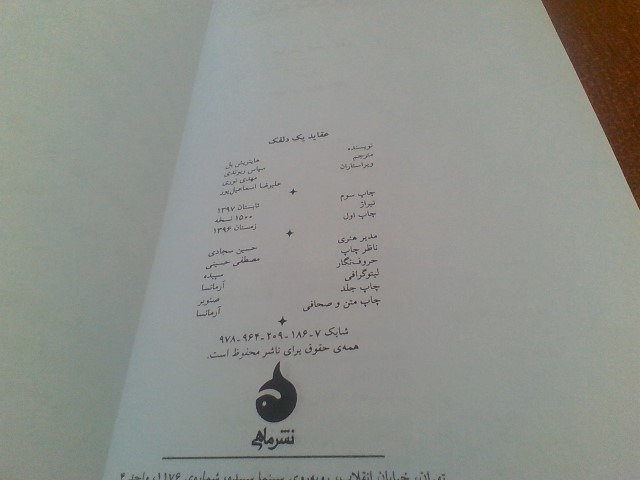 عقاید یک دلقک
نویسنده هاینریش بل
مترجم سپاس ریوندی
ویراستاران مهدی نوری
علیرضا اسماعیل‌پور
چاپ سوم تابستان ۱۳۹۷
تیراژ ۱۵۰۰ نسخه
چاپ اول زمستان ۱۳۹۶
مدیر هنری حسین سجادی
ناظر چاپ مصطفی حسینی
حروف‌نگار سپیده
لیتوگرافی آرمانسا
چاپ جلد صنوبر
چاپ متن و صحافی آرمانسا
شابک ۷-۱۸۶-۲۰۹-۹۶۴-۹۷۸
همه‌ی حقوق برای ناشر محفوظ است.
نشر ماهی
تهران، خیابان انقلاب، روبه‌روی سینما سپیده، شماره‌ی ۱۱۷۶، واحد ۴